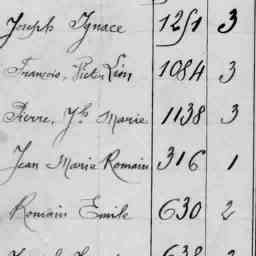 Joseph Ignace 1251 3
François, Victor Léon 1084 3
Pierre, Jh Marie 1138 3
Jean Marie Romain 316 1
Romain Emile 630 2
638 2